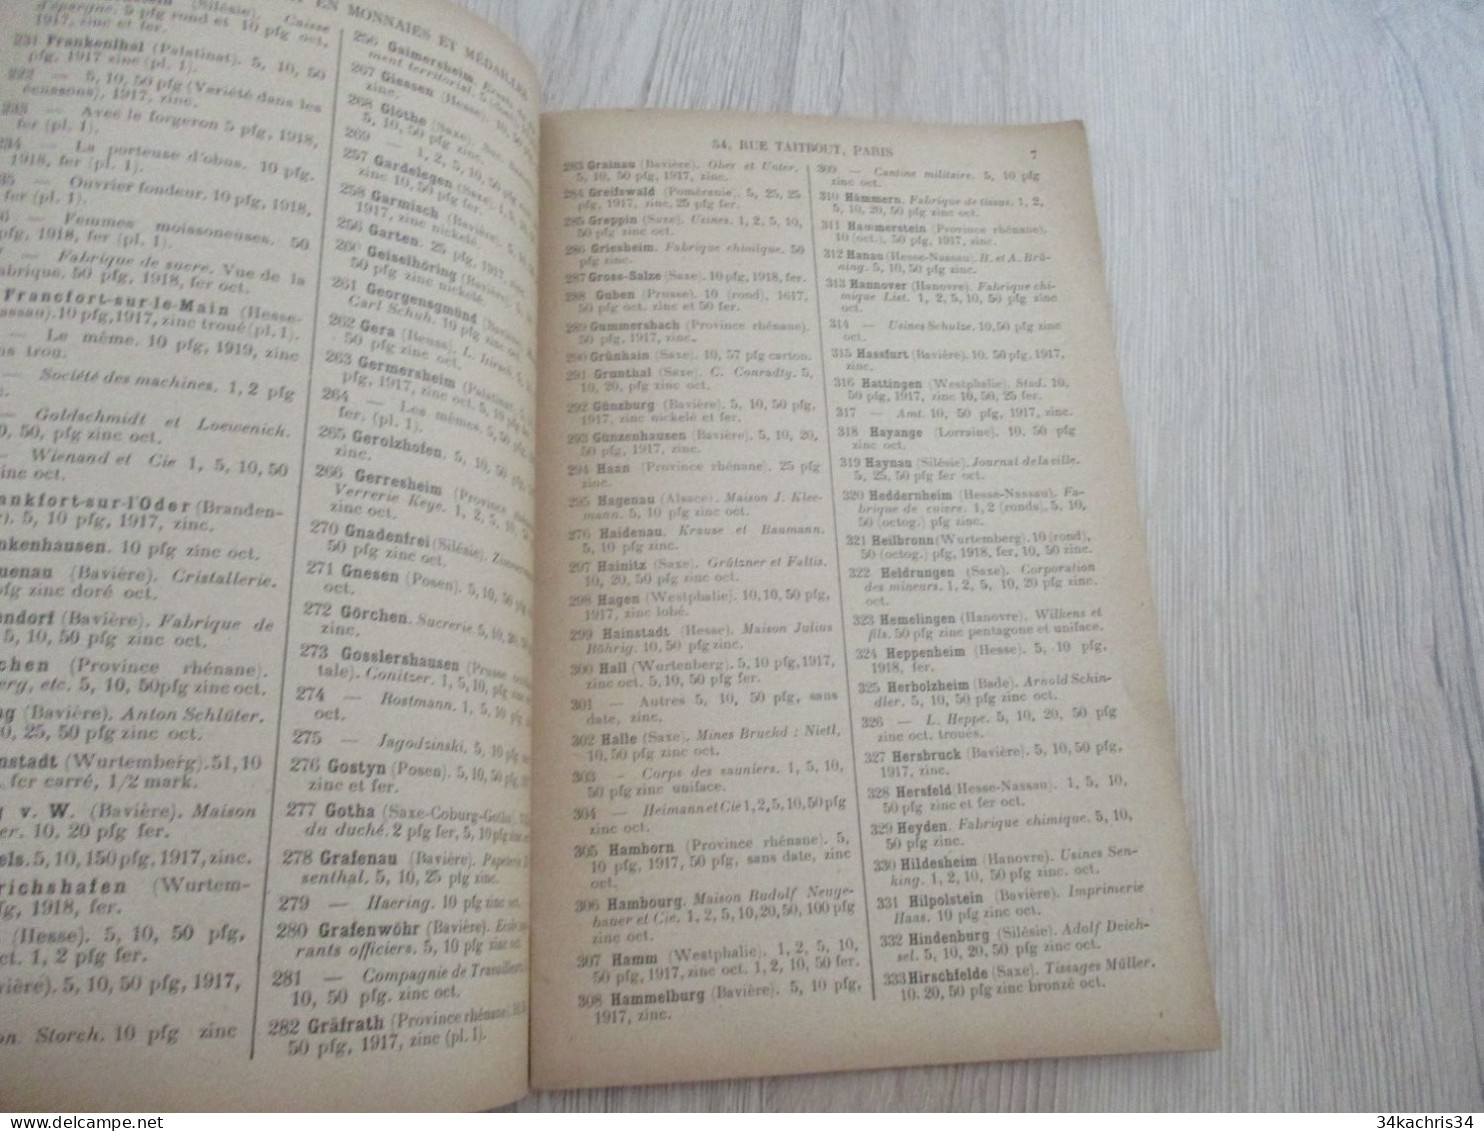 EN MONNAIES ET MÉDAILLES
(Silésie). Caisse
d'épargne. 5 pfg rond et 10 pfg oct,
1917, zinc et fer.
231 Frankenthal (Palatinat). 5, 10, 50
pfg, 1917 zinc (pl. 1).
222 — 5, 10, 50 pfg (Variété dans les
écussons), 1917, zinc.
233 — Avec le forgeron 5 pfg, 1918,
fer (pl. 1).
234 — La porteuse d'obus. 10 pfg.
1918, fer (pl. 1).
— Ouvrier fondeur. 10 pfg, 1918,
fer (pl. 1).
— Femmes moissoneuses. 50
pfg, 1918, fer (pl. 1).
— Fabrique de sucre. Vue de la
fabrique. 50 pfg, 1918, fer oct.
Francfort-sur-le-Main (Hesse-
Nassau). 10 pfg, 1917, zinc troué (pl. 1).
— Le même. 10 pfg, 1919, zinc
trou.
— Société des machines. 1, 2 pfg
— Goldschmidt et Loewenich.
50, pfg zinc oct.
— Wienand et Cie 1, 5, 10, 50
zinc oct.
ankfort-sur-l'Oder (Branden-
5, 10 pfg, 1917, zinc.
nkenhausen. 10 pfg zinc oct.
uenau (Bavière). Cristallerie.
pfg zinc doré oct.
endorf (Bavière). Fabrique de
5, 10, 50 pfg zinc oct.
chen (Province rhénane).
erg, etc. 5, 10, 50 pfg zinc oct.
ng (Bavière). Anton Schlüter.
0, 25, 50 pfg zinc oct.
nstadt (Wurtemberg). 51, 10
fer carré, 1/2 mark.
g v. W. (Bavière). Maison
er. 10, 20 pfg fer.
els. 5, 10, 150 pfg, 1917, zinc.
richshafen (Wurtem-
fg, 1918, fer.
(Hesse). 5, 10, 50 pfg,
ct. 1, 2 pfg fer.
avière). 5, 10, 50 pfg, 1917,
on Storch. 10 pfg zinc
256 Gaimersheim
ment territorial. 5
zinc.
267 Giessen (Hesse). 10, 50
268 Glothe (Saxe).
5, 10, 50 pfg zinc
269 — 1, 2, 5, 10, 50
257 Gardelegen (Saxe).
zinc 10, 50 pfg fer.
258 Garmisch (Bavière). 5, 10
1917, zinc nickelé.
256 Garten. 25 pfg, 1917
260 Geiselhöring (Bavière).
50 pfg zinc nickelé.
261 Georgensgmünd (Bavière).
Carl Schuh. 10 pfg zinc oct.
262 Gera (Reuss). L. Hirsch
50 pfg zinc oct.
263 Germersheim (Palatinat).
pfg, 1917, zinc oct. 5, 10 pfg
264 — Les mêmes.
fer. (pl. 1).
265 Gerolzhofen. 5, 10, 50 pfg
zinc.
266 Gerresheim (Province
Verrerie Keye. 1, 2, 5, 10, 50
zinc oct.
270 Gnadenfrei (Silésie).
50 pfg zinc oct.
271 Gnesen (Posen). 5, 10, 50 pfg
oct.
272 Görchen. Sucrerie. 5, 10, 20, 50
zinc.
273 Gosslershausen (Prusse
tale). Conitzer. 1, 5, 10, pfg zinc
274 — Rostmann. 1, 5, 10 pfg
oct.
275 — Jagodzinski, 5, 10 pfg
276 Gostyn (Posen). 5, 10, 50 pfg, 1917
zinc et fer.
277 Gotha (Saxe-Coburg-Gotha)
du duché. 2 pfg fer, 5, 10 pfg zinc
278 Grafenau (Bavière). Papeterie
senthal. 5, 10, 25 pfg zinc.
279 — Haering. 10 pfg zinc oct.
280 Grafenwöhr (Bavière).
rants officiers. 5, 10 pfg zinc oct.
281 — Compagnie de Travailleurs
10, 50 pfg. zinc oct.
282 Gräfrath (Province rhénane).
50 pfg, 1917, zinc (pl. 1).
54, RUE TAITBOUT, PARIS 7
283 Grainau (Bavière). Ober et Unter.
5, 10, 50 pfg, 1917, zinc.
284 Greifswald (Poméranie). 5, 25, 25
pfg, 1917, zinc, 25 pfg fer.
285 Greppin (Saxe). Usines. 1, 2, 5, 10,
50 pfg zinc oct.
286 Griesheim. Fabrique chimique. 50
pfg zinc.
287 Gross-Salze (Saxe). 10 pfg, 1918, fer.
288 Guben (Prusse). 10 (rond), 1617,
50 pfg, oct. zinc et 50 fer.
289 Gummersbach (Province rhénane).
50 pfg, 1917, zinc.
290 Grünhain (Saxe). 10, 57 pfg carton.
291 Grunthal (Saxe). C. Conradty. 5,
10, 20, pfg zinc oct.
292 Günzburg (Bavière). 5, 10, 50 pfg,
1917, zinc nickelé et fer.
293 Günzenhausen (Bavière). 5, 10, 20,
50 pfg, 1917, zinc.
294 Haan (Province rhénane). 25 pfg
zinc.
295 Hagenau (Alsace). Maison J. Klee-
mann. 5, 10 pfg zinc oct.
276 Haidenau. Krause et Baumann.
5, 10 pfg zinc.
297 Hainitz (Saxe). Grützner et Faltis.
10, 20, 50 pfg zinc oct.
298 Hagen (Westphalie). 10, 10, 50 pfg,
1917, zinc lobé.
299 Hainstadt (Hesse). Maison Julius
Böhrig. 10, 50 pfg zinc.
300 Hall (Wurtenberg). 5, 10 pfg, 1917,
zinc oct. 5, 10, 50 pfg fer.
301 — Autres 5, 10, 50 pfg, sans
date, zinc.
302 Halle (Saxe). Mines Bruckd : Nietl,
10, 50 pfg zinc oct.
303 — Corps des sauniers. 1, 5, 10,
50 pfg zinc uniface.
304 — Heimann et Cie 1, 2, 5, 10, 50 pfg
zinc oct.
305 Hamborn (Province rhénane). 5,
10 pfg, 1917, 50 pfg, sans date, zinc
oct.
306 Hambourg. Maison Rudolf Neuge-
bauer et Cie. 1, 2, 5, 10, 20, 50, 100 pfg
zinc oct.
307 Hamm (Westphalie). 1, 2, 5, 10,
50 pfg, 1917, zinc oct. 1, 2, 10, 50 fer.
308 Hammelburg (Bavière). 5, 10 pfg,
1917, zinc.
309 — Cantine militaire. 5, 10 pfg
zinc oct.
310 Hämmern. Fabrique de tissus. 1, 2,
5, 10, 20, 50 pfg zinc oct.
311 Hammerstein (Province rhénane).
10 (oct.), 50 pfg, 1917, zinc.
312 Hanau (Hesse-Nassau). B. et A. Brü-
ning. 5, 10, 50 pfg zinc.
313 Hannover (Hanovre). Fabrique chi-
mique List. 1, 2, 5, 10, 50 pfg zinc
oct.
314 — Usines Schulze. 10, 50 pfg zinc
oct.
315 Hassfurt (Bavière). 10. 50 pfg, 1917,
zinc.
316 Hattingen (Westphalie). Stad. 10,
50 pfg, 1917, zinc, 10, 50, 25 fer.
317 — Amt. 10, 50 pfg, 1917, zinc.
318 Hayange (Lorraine). 10, 50 pfg
zinc oct.
319 Haynau (Silésie). Journal de la ville.
5, 25, 50 pfg fer oct.
320 Heddernheim (Hesse-Nassau). Fa-
brique de cuivre. 1, 2 (ronds), 5, 10,
50 (octog.) pfg zinc.
321 Heilbronn (Wurtemberg). 10 (rond),
50 (octog.) pfg, 1918, fer, 10, 50 zinc.
322 Heldrungen (Saxe). Corporation
des mineurs. 1, 2, 5, 10, 20 pfg zinc.
oct.
323 Hemelingen (Hanovre). Wilkens et
fils. 50 pfg zinc pentagone et uniface.
324 Heppenheim (Hesse). 5, 10 pfg,
1918, fer.
325 Herbolzheim (Bade). Arnold Schin-
dler. 5, 10, 50 pfg zinc oct.
326 — L. Heppe. 5, 10, 20, 50 pfg
zinc oct. troués.
327 Hersbruck (Bavière). 5, 10, 50 pfg,
1917, zinc.
328 Hersfeld (Hesse-Nassau). 1, 5, 10,
50 pfg zinc et fer oct.
329 Heyden. Fabrique chimique. 5, 10,
50 pfg zinc.
330 Hildesheim (Hanovre). Usines Sen-
king. 1, 2, 10, 50 pfg zinc oct.
331 Hilpolstein (Bavière). Imprimerie
Haas. 10 pfg zinc oct.
332 Hindenburg (Silésie). Adolf Deich-
sel. 5, 10, 20, 50 pfg zinc oct.
333 Hirschfelde (Saxe). Tissages Müller.
10. 20, 50 pfg zinc bronzé oct.
34kachris34